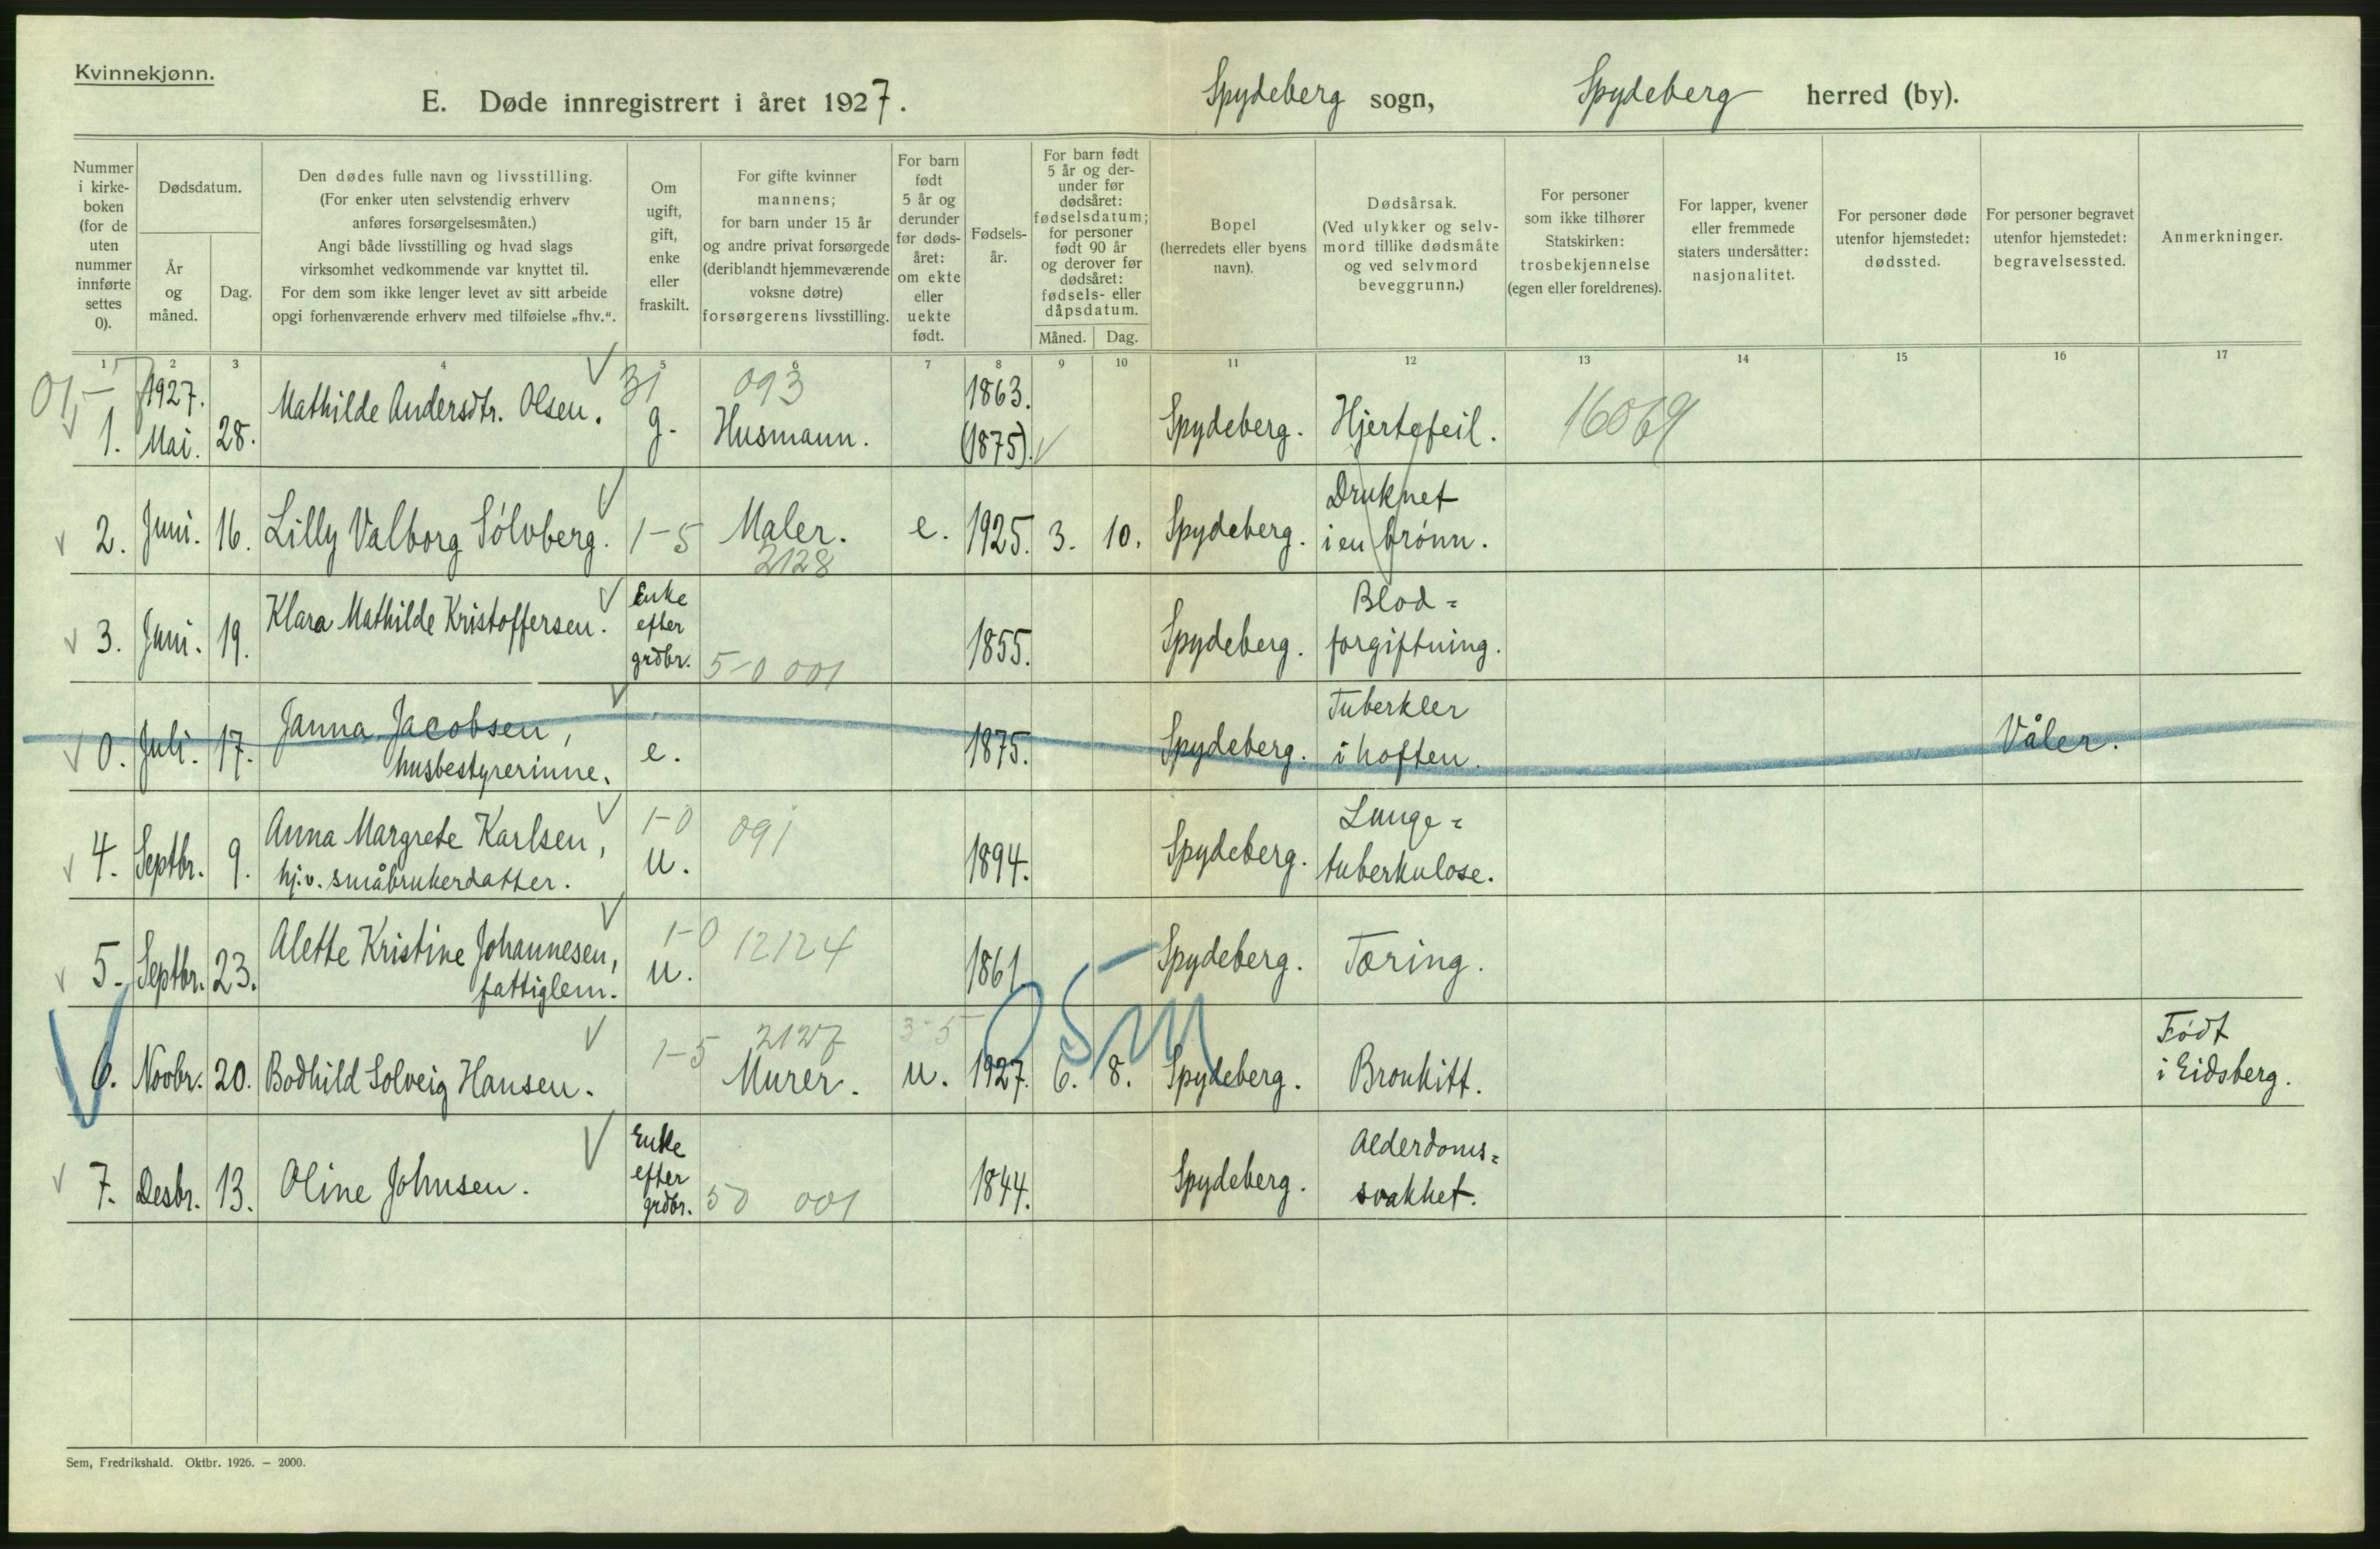 Kvinnekjønn.
E. Døde innregistrert i året 1927.
Spydeberg sogn, Spydeberg herred (by).
Nummer
i kirke-
boken
(for de
uten
nummer
innførte
settes
0).
Dødsdatum.
År
og
måned.
Dag.
Den dødes fulle navn og livsstilling.
(For enker uten selvstendig erhverv
anføres forsørgelsesmåten.)
Angi både livsstilling og hvad slags
virksomhet vedkommende var knyttet til.
For dem som ikke lenger levet av sitt arbeide
opgi forhenværende erhverv med tilføielse „fhv.“.
Om
ugift,
gift,
enke
eller
fraskilt.
For gifte kvinner
mannens;
for barn under 15 år
og andre privat forsørgede
(deriblandt hjemmeværende
voksne døtre)
forsørgerens livsstilling.
For barn
født
5 år og
derunder
før døds-
året:
om ekte
eller
uekte
født.
Fødsels-
år.
For barn født
5 år og der-
under før
dødsåret:
fødselsdatum;
for personer
født 90 år
og derover før
dødsåret:
fødsels- eller
dåpsdatum.
Måned. Dag.
Bopel
(herredets eller byens
navn).
Dødsårsak.
(Ved ulykker og selv-
mord tillike dødsmåte
og ved selvmord
beveggrunn.)
For personer
som ikke tilhører
Statskirken:
trosbekjennelse
(egen eller foreldrenes).
For lapper, kvener
eller fremmede
staters undersåtter:
nasjonalitet.
For personer døde
utenfor hjemstedet:
dødssted.
For personer begravet
utenfor hjemstedet:
begravelsessted.
Anmerkninger.
1 2 3 4 5 6 7 8 9 10 11 12 13 14 15 16 17
1927. 31 093 1863.
1. Mai. 28. Mathilde Andersdtr. Olsen. g. Husmann. (1875). Spydeberg. Hjertefeil. 16069
Druknet
2. Juni. 16. Lilly Valborg Sølvberg. 1-5 Maler. e. 1925. 3. 10. Spydeberg. i en brønn.
2128
Enke
efter
grdbr.
Blod=
3. Juni. 19. Klara Mathilde Kristoffersen. 5-0 001 1855. Spydeberg. forgiftning.
Tuberkler
0. Juli. 17. Janna Jacobsen, e. 1875. Spydeberg. i hoften. Våler.
husbestyrerinne.
1-0 091 Lunge=
4. Septbr. 9. Anna Margrete Karlsen, u. 1894. Spydeberg. tuberkulose.
hj.v. småbrukerdatter.
1-0 12124
5. Septbr. 23. Alette Kristine Johannesen, u. 1861. Spydeberg. Tæring.
fattiglem.
2127 3-5 Født
6. Novbr. 20. Bodhild Solveig Hansen. 1-5 Murer. u. 1927. 6. 8. Spydeberg. Bronkitt. i Eidsberg.
Enke
efter
grdbr.
Alderdoms=
7. Desbr. 13. Oline Johnsen. 50 001 1844. Spydeberg. svakhet.
Sem, Fredrikshald. Oktbr. 1926. — 2000.